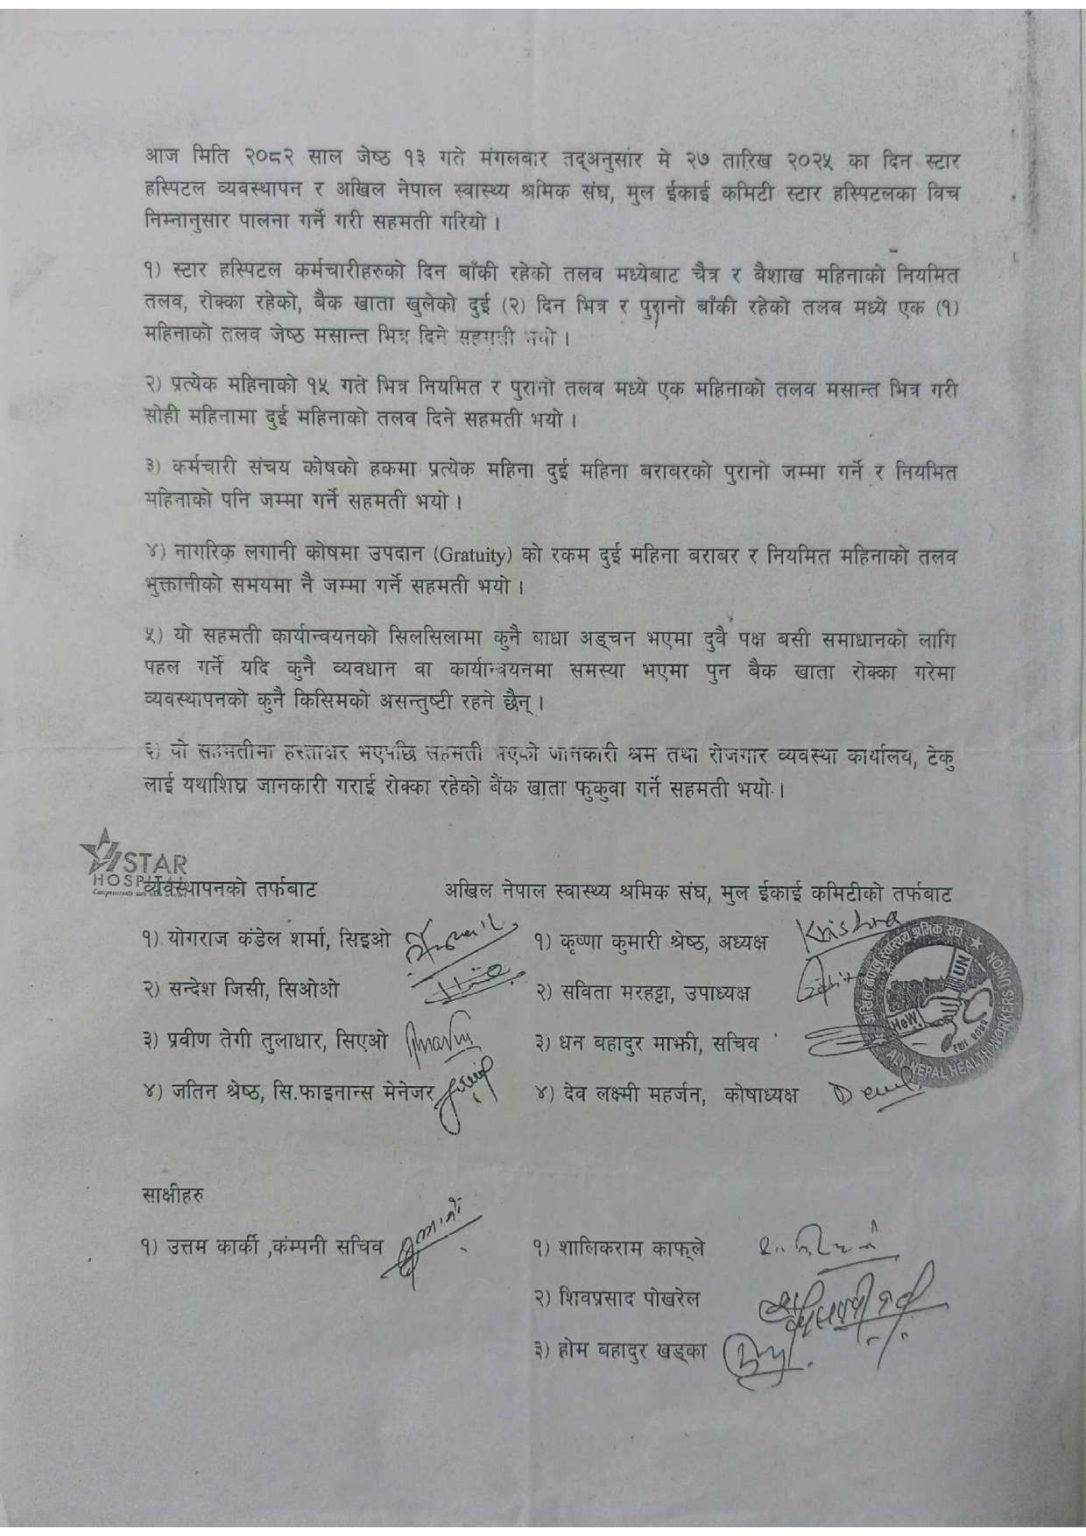 आज मिति २०८२ साल जेष्ठ १३ गते मंगलबार तद्अनुसार मे २७ तारिख २०२५ का दिन स्टार
हस्पिटल व्यवस्थापन र अखिल नेपाल स्वास्थ्य श्रमिक संघ, मुल ईकाई कमिटी स्टार हस्पिटलका विच
निम्नानुसार पालना गर्ने गरी सहमती गरियो ।
१) स्टार हस्पिटल कर्मचारीहरुको दिन बाँकी रहेको तलव मध्येबाट चैत्र र बैशाख महिनाको नियमित
तलव, रोक्का रहेको, बैक खाता खुलेको दुई (२) दिन भित्र र पुरानो बाँकी रहेको तलव मध्ये एक (१)
महिनाको तलव जेष्ठ मसान्त भित्र दिने सहमती भयो ।
२) प्रत्येक महिनाको १५ गते भित्र नियमित र पुरानो तलव मध्ये एक महिनाको तलव मसान्त भित्र गरी
सोही महिनामा दुई महिनाको तलव दिने सहमती भयो ।
३) कर्मचारी संचय कोषको हकमा प्रत्येक महिना दुई महिना बराबरको पुरानो जम्मा गर्ने र नियमित
महिनाको पनि जम्मा गर्ने सहमती भयो ।
४) नागरिक लगानी कोषमा उपदान (Gratuity) को रकम दुई महिना बराबर र नियमित महिनाको तलव
भुक्तानीको समयमा नै जम्मा गर्ने सहमती भयो ।
५) यो सहमती कार्यान्वयनको सिलसिलामा कुनै बाधा अड्चन भएमा दुवै पक्ष बसी समाधानको लागि
पहल गर्ने यदि कुनै व्यवधान वा कार्यान्वयनमा समस्या भएमा पुन बैक खाता रोक्का गरेमा
व्यवस्थापनको कुनै किसिमको असन्तुष्टी रहने छैन् ।
६) यो सहमतीमा हस्ताक्षर भएपछि सहमती भएको जानकारी श्रम तथा रोजगार व्यवस्था कार्यालय, टेकु
लाई यथाशिघ्र जानकारी गराई रोक्का रहेको बैंक खाता फुकुवा गर्ने सहमती भयो ।
STAR
HOSPITAL
व्यवस्थापनको तर्फबाट अखिल नेपाल स्वास्थ्य श्रमिक संघ, मुल ईकाई कमिटीको तर्फबाट
१) योगराज कंडेल शर्मा, सिइओ १) कृष्णा कुमारी श्रेष्ठ, अध्यक्ष Krishna
२) सन्देश जिसी, सिओओ २) सविता मरहट्टा, उपाध्यक्ष
३) प्रवीण तेगी तुलाधार, सिएओ ३) धन बहादुर माझी, सचिव
४) जतिन श्रेष्ठ, सि.फाइनान्स मेनेजर ४) देव लक्ष्मी महर्जन, कोषाध्यक्ष
अखिल नेपाल स्वास्थ्य श्रमिक संघ
ALL NEPAL HEALTH WORKERS UNION
UN
HoW
साक्षीहरु
१) उत्तम कार्की ,कंम्पनी सचिव १) शालिकराम काफ्ले
२) शिवप्रसाद पोखरेल
३) होम बहादुर खड्का